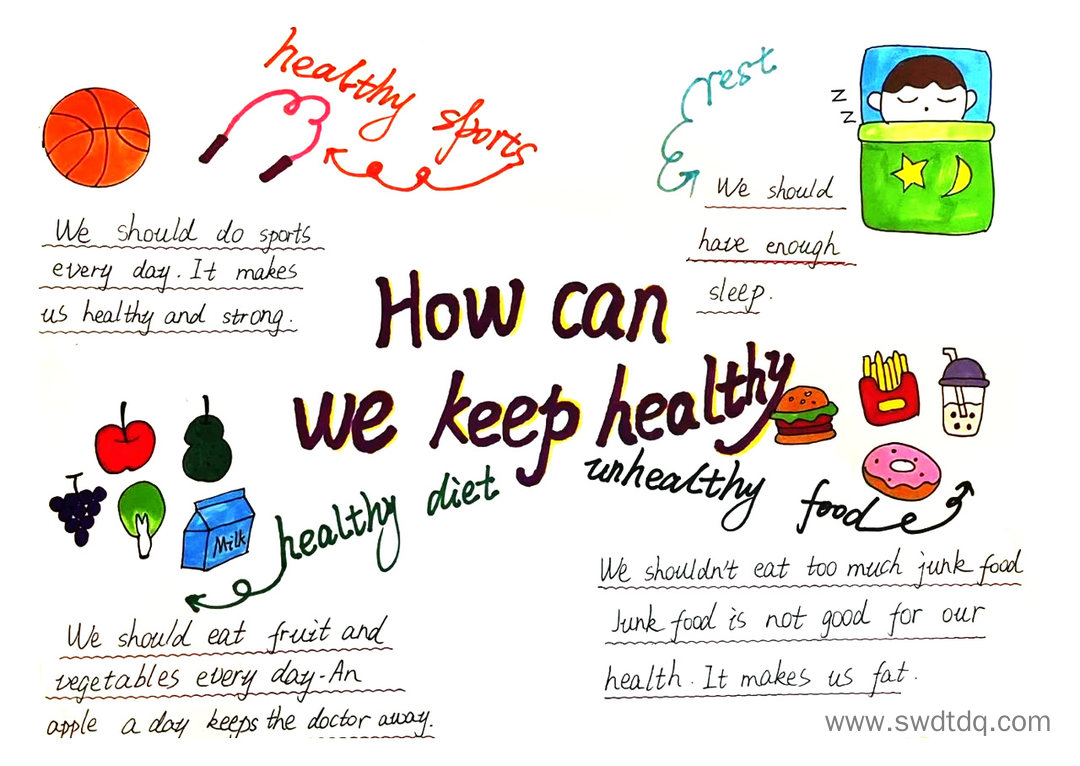 healthy sports
We should do sports
every day. It makes
us healthy and strong.
rest
z
z
We should
have enough
sleep.
How can
we keep healthy
healthy diet
Milk
We should eat fruit and
vegetables every day. An
apple a day keeps the doctor away.
unhealthy food
We shouldn't eat too much junk food
Junk food is not good for our
health. It makes us fat.
www.swdtdq.com